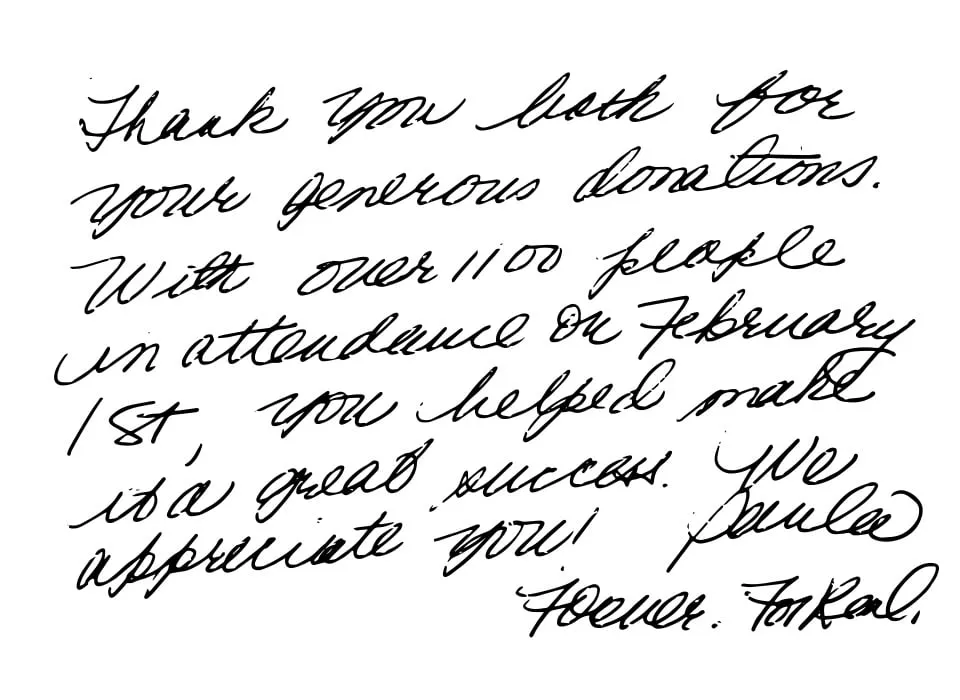 Thank you both for
your generous donations.
With over 1100 people
in attendance on February
1st, you helped make
it a great success. We
appreciate you! Paula
Forever. ForReal.